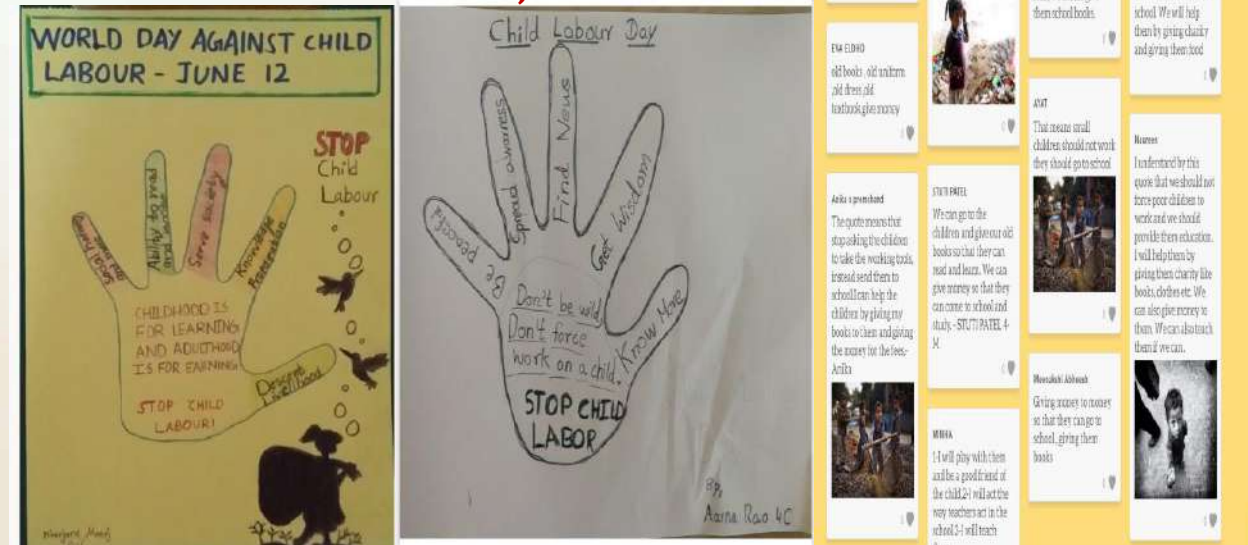 WORLD DAY AGAINST CHILD
LABOUR - JUNE 12
STOP
Child
Labour
Ability to read
Serve society
Knowledge
CHILDHOOD IS
FOR LEARNING
AND ADULTHOOD
IS FOR EARNING
STOP CHILD
LABOUR!
Child Labour Day
Be peaceful
Spread
Find News
Get Wisdom
Know More
Don't be wild
Don't force
work on a child.
STOP CHILD
LABOR
By,
Aarna Rao 4C
ENA ELDHO
old books, old uniform
,old dress,old
textbook,give money
Anika s premchand
The quote means that
stop asking the children
to take the working tools,
instead send them to
school.I can help the
children by giving my
books to them and giving
the money for the fees.-
Anika
STUTI PATEL
We can go to the
children and give our old
books so that they can
read and learn. We can
give money so that they
can come to school and
study. - STUTI PATEL 4-
M
1-I will play with them
and be a good friend of
the child.2-I will act the
way teachers act in the
school.3-I will teach
them school books.
AYAT
That means small
children should not work
they should go to school
Meenakshi Abheesh
Giving money to money
so that they can go to
school,,giving them
books
school. We will help
them by giving charity
and giving them food
Noureen
I understand by this
quote that we should not
force poor children to
work and we should
provide them education.
I will help them by
giving them charity like
books,clothes etc. We
can also give money to
them. We can also teach
them if we can.